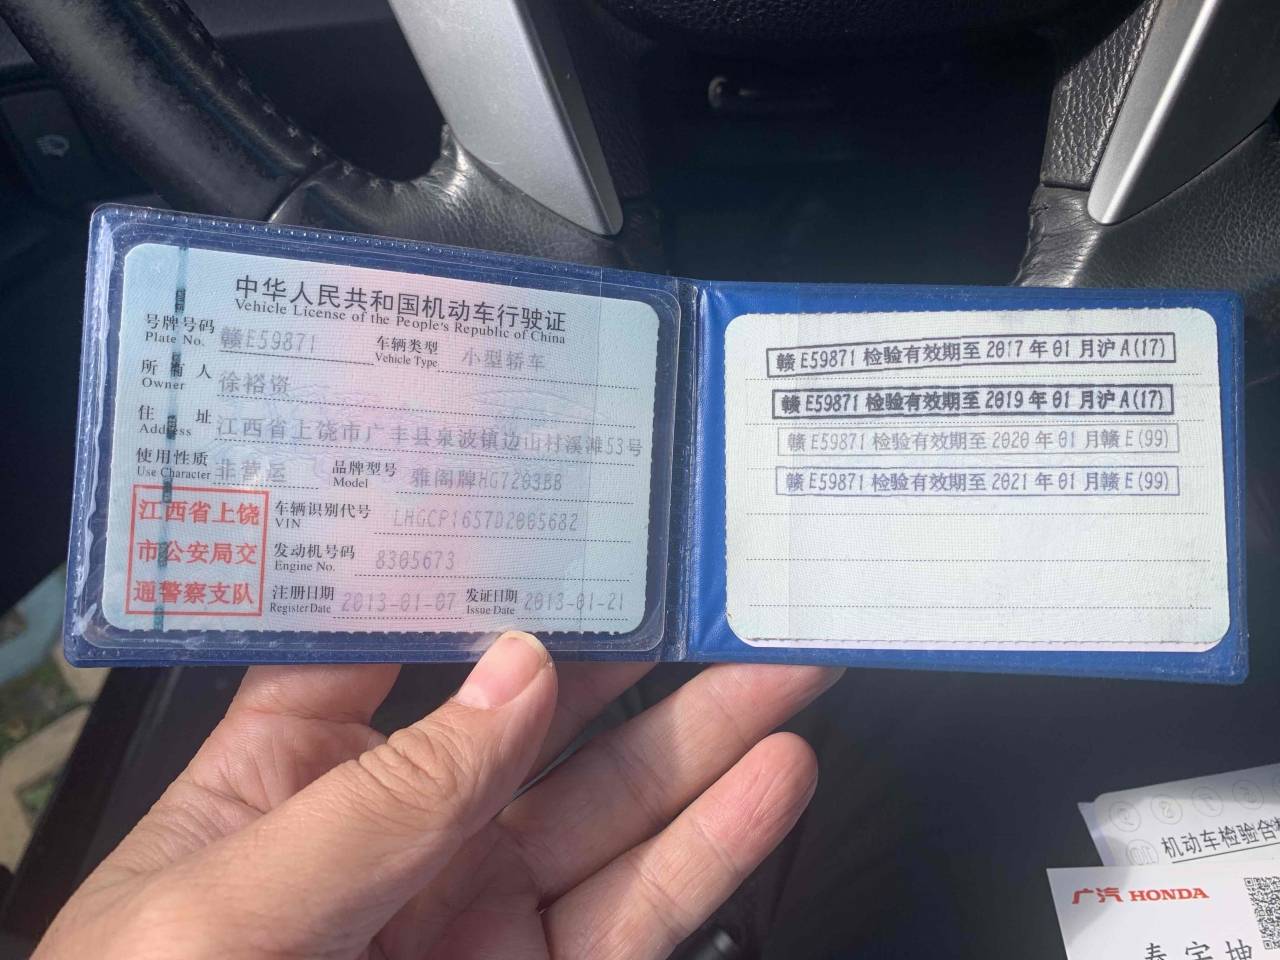 中华人民共和国机动车行驶证
Vehicle License of the People's Republic of China
号牌号码 赣E59871 车辆类型 小型轿车
Plate No. Vehicle Type
所有人 徐裕资
Owner
住址 江西省上饶市广丰县泉波镇边山村溪滩53号
Address
使用性质 非营运 品牌型号 雅阁牌HG7203BB
Use Character Model
江西省上饶
市公安局交
通警察支队
车辆识别代号 LHGCP1657D2005682
VIN
发动机号码 8305673
Engine No.
注册日期 2013-01-07 发证日期 2013-01-21
Register Date Issue Date
赣E59871检验有效期至2017年01月沪A(17)
赣E59871检验有效期至2019年01月沪A(17)
赣E59871检验有效期至2020年01月赣E(99)
赣E59871检验有效期至2021年01月赣E(99)
机动车检验合
广汽 HONDA